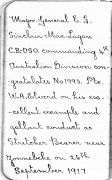 Major General E. G.
Sinclair MacLagan
C.B. DSO. commanding 4th
Australian Division con-
gratulates No 1993. Pte.
W.A. Elvord on his ex-
cellent example and
gallant conduct as
Stretcher Bearer near
Zonnebeke on 26th
September 1917